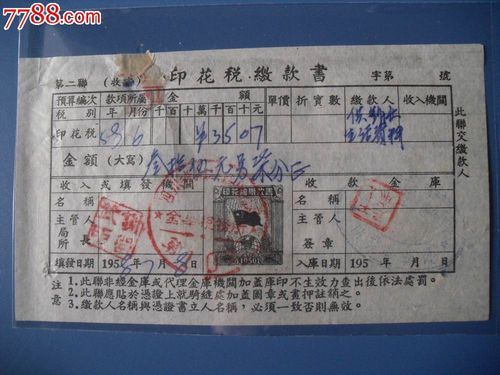 7788.com
印花税繳款書
第二聯 (收據) 字第 號
預算編次 款項所屬 金額 單價 折實數 繳款人 收入機關
税別 年 月份 千百十萬千百十元
印花税 58 6 ¥3507
金額 (大寫) 叁拾伍元
收入或填發機關 收款金庫
名稱 名稱
主管人 主管人
局長 所
簽章
填發日期 1958年7月8日 入庫日期 195 年 月 日
此聯交繳款人
注意
1.此聯非經金庫或代理金庫機關加蓋庫印不生效力查出後依法處罰。
2.此聯應貼於憑證上就騎縫處加蓋圖章或畫押註銷之。
3.繳款人名稱與憑證書立人名稱,必須一致否則無效。